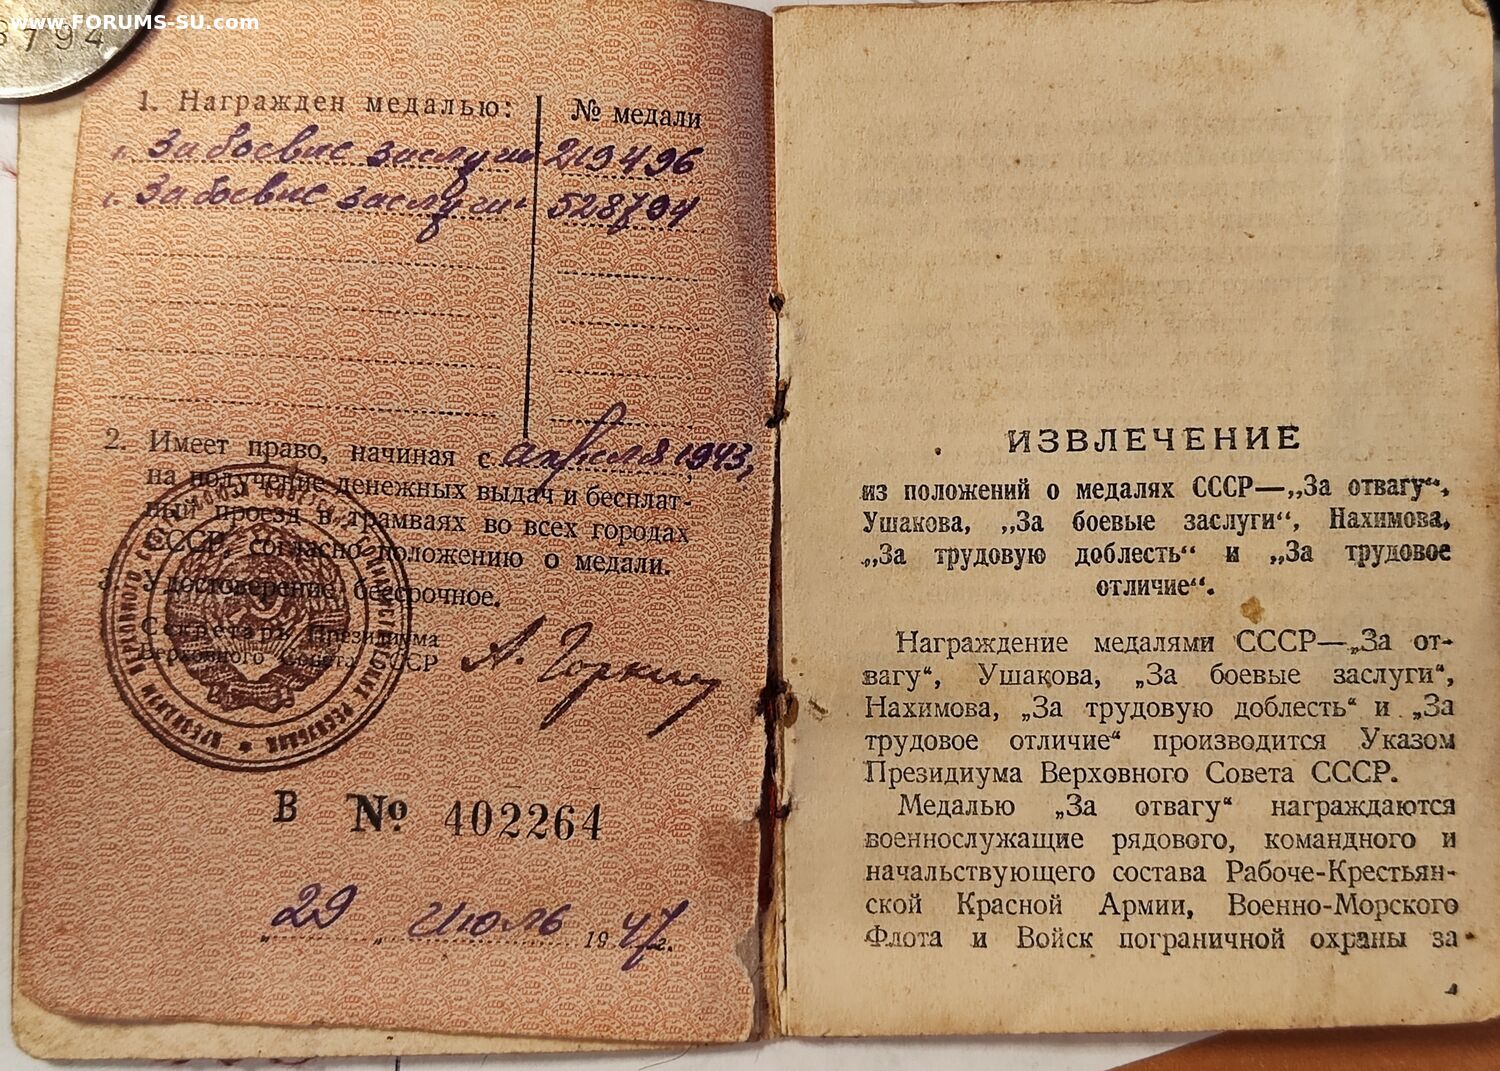 www.FORUMS-SU.com
8794
1. Награжден медалью: № медали
1. За боевые заслуги 219496
2. За боевые заслуги 528794
2. Имеет право, начиная с апреля 1943,
на получение денежных выдач и бесплат-
ный проезд в трамваях во всех городах
СССР, согласно положению о медали.
3. Удостоверение бессрочное.
Секретарь Президиума
Верховного Совета СССР А. Горкин
В № 402264
„29 „ июль 1947г.
ИЗВЛЕЧЕНИЕ
из положений о медалях СССР—„За отвагу“,
Ушакова, „За боевые заслуги“, Нахимова,
„За трудовую доблесть“ и „За трудовое
отличие“.
Награждение медалями СССР—„За от-
вагу“, Ушакова, „За боевые заслуги“,
Нахимова, „За трудовую доблесть“ и „За
трудовое отличие“ производится Указом
Президиума Верховного Совета СССР.
Медалью „За отвагу“ награждаются
военнослужащие рядового, командного и
начальствующего состава Рабоче-Крестьян-
ской Красной Армии, Военно-Морского
Флота и Войск пограничной охраны за